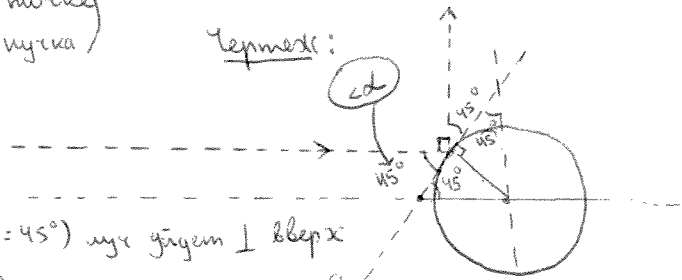 точке
пучка)
Чертеж:
∠α
45°
45°
45°
45°
=45°) луч уйдет ⊥ вверх